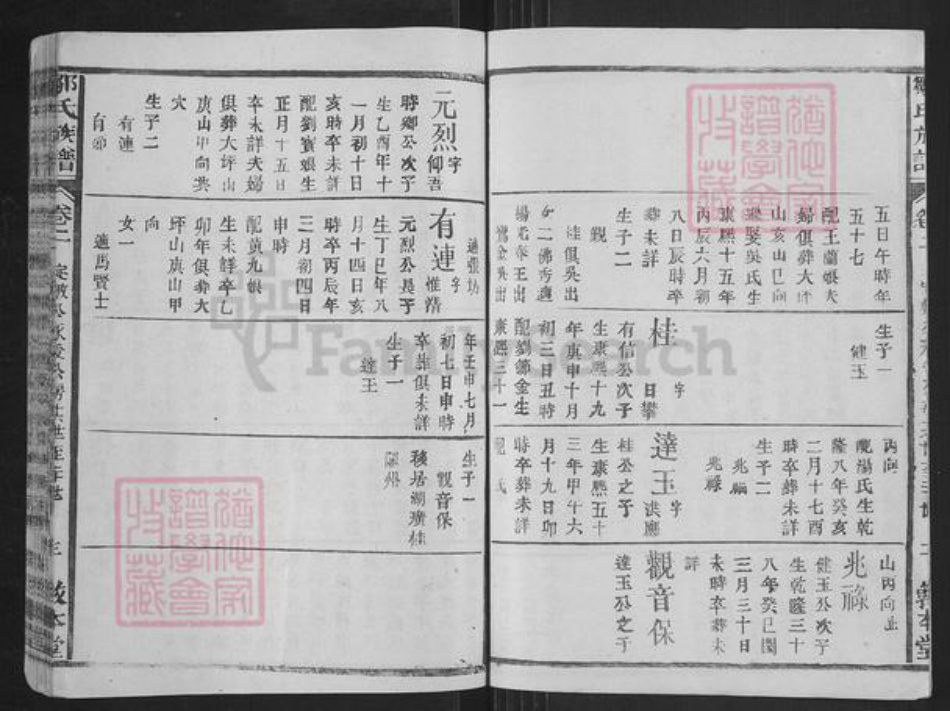 五日午時年
五十七
配王蘭娘夫
婦俱葬大坪
山亥山巳向
吳氏生
康熙十五年
丙辰六月初
八日辰時卒
葬未詳
生子二
觀
桂俱吳出
女二佛秀適
楊 王出
金吳出
生子一
健玉
桂 字日攀
有信公次子
生康熙十九
年庚申十月
初三日丑時
配劉節金生
康熙三十一
丙向
配湯氏生乾
隆八年癸亥
二月十七酉
時卒葬未詳
生子二
兆
兆祿
達玉 字洪應
桂公之子
生康熙五十
三年甲午六
月十九日卯
時卒葬未詳
配 氏
山丙向止
兆祿
健玉公次子
生乾隆三十
八年癸巳閏
三月三十日
未時卒葬未
詳
觀音保
達玉公之子
敦本堂
元烈 字仰吾
時卿公次子
生乙酉年十
一月初十日
亥時卒未詳
配劉寶娘生
正月十五日
卒未詳夫婦
俱葬大坪山
庚山甲向共
穴
生子二
有連
有
適張坊
有連 字惟清
元烈公長子
生丁巳年八
月十四日亥
時卒丙辰年
三月初四日
申時
配黃九娘
生未詳卒乙
卯年俱葬大
坪山庚山甲
向
女一
適馬賢士
年壬申七月
初七日申時
卒葬俱未詳
生子一
達玉
生子一
觀音保
移居湖廣桂
陽州
鄒氏族譜
卷二
三
敦本堂
猶他家
譜學會
收藏
猶他家
譜學會
收藏
FamilySearch